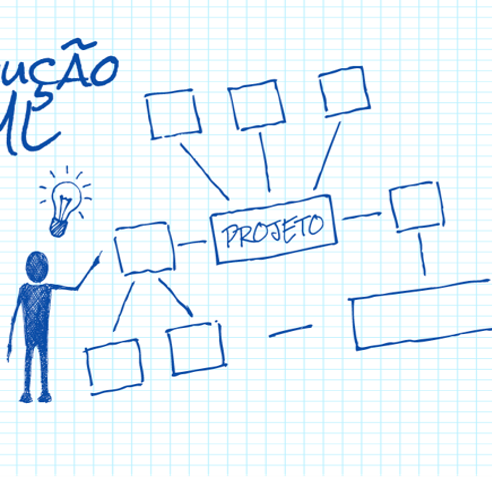 ução
ML
PROJETO